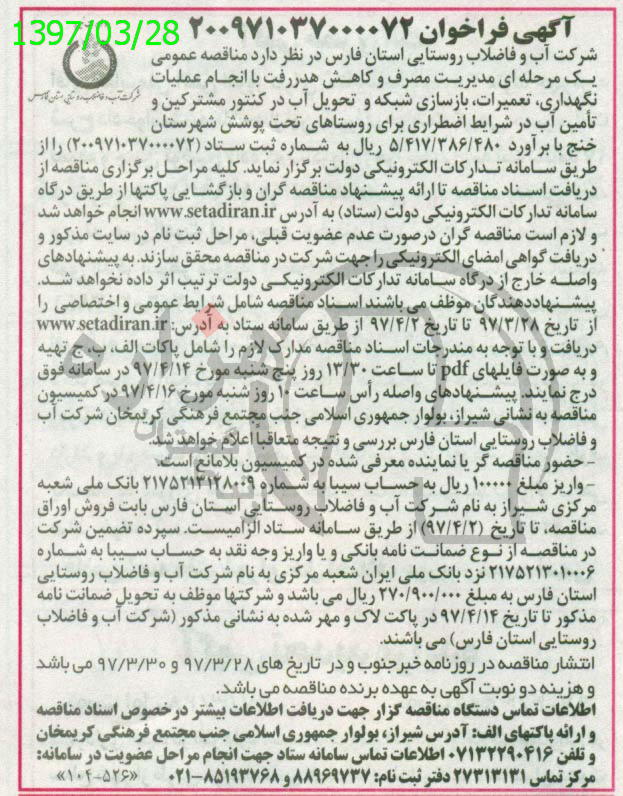 1397/03/28
آگهی فراخوان ۲۰۰۹۷۱۰۳۷۰۰۰۰۷۲
شرکت آب و فاضلاب روستایی استان فارس
شرکت آب و فاضلاب روستایی استان فارس در نظر دارد مناقصه عمومی
یک مرحله ای مدیریت مصرف و کاهش هدررفت با انجام عملیات
نگهداری، تعمیرات، بازسازی شبکه و تحویل آب در کنتور مشترکین و
تأمین آب در شرایط اضطراری برای روستاهای تحت پوشش شهرستان
خنج با برآورد ۵/۴۱۷/۳۸۶/۴۸۰ ریال به شماره ثبت ستاد (۲۰۰۹۷۱۰۳۷۰۰۰۰۷۲) را از
طریق سامانه تدارکات الکترونیکی دولت برگزار نماید. کلیه مراحل برگزاری مناقصه از
دریافت اسناد مناقصه تا ارائه پیشنهاد مناقصه گران و بازگشایی پاکتها از طریق درگاه
سامانه تدارکات الکترونیکی دولت (ستاد) به آدرس www.setadiran.ir انجام خواهد شد
و لازم است مناقصه گران درصورت عدم عضویت قبلی، مراحل ثبت نام در سایت مذکور و
دریافت گواهی امضای الکترونیکی را جهت شرکت در مناقصه محقق سازند. به پیشنهادهای
واصله خارج از درگاه سامانه تدارکات الکترونیکی دولت ترتیب اثر داده نخواهد شد.
پیشنهاددهندگان موظف می باشند اسناد مناقصه شامل شرایط عمومی و اختصاصی را
از تاریخ ۹۷/۳/۲۸ تا تاریخ ۹۷/۴/۲ از طریق سامانه ستاد به آدرس: www.setadiran.ir
دریافت و با توجه به مندرجات اسناد مناقصه مدارک لازم را شامل پاکات الف، ب، ج تهیه
و به صورت فایلهای pdf تا ساعت ۱۳/۳۰ روز پنج شنبه مورخ ۹۷/۴/۱۴ در سامانه فوق
درج نمایند. پیشنهادهای واصله رأس ساعت ۱۰ روز شنبه مورخ ۹۷/۴/۱۶ در کمیسیون
مناقصه به نشانی شیراز، بولوار جمهوری اسلامی جنب مجتمع فرهنگی کریمخان شرکت آب
و فاضلاب روستایی استان فارس بررسی و نتیجه متعاقبا اعلام خواهد شد.
- حضور مناقصه گر یا نماینده معرفی شده در کمیسیون بلامانع است.
- واریز مبلغ ۱۰۰۰۰۰ ریال به حساب سیبا به شماره ۲۱۷۵۲۱۳۱۲۸۰۰۹ بانک ملی شعبه
مرکزی شیراز به نام شرکت آب و فاضلاب روستایی استان فارس بابت فروش اوراق
مناقصه، تا تاریخ (۹۷/۴/۲) از طریق سامانه ستاد الزامیست. سپرده تضمین شرکت
در مناقصه از نوع ضمانت نامه بانکی و یا واریز وجه نقد به حساب سیبا به شماره
۲۱۷۵۲۱۳۰۱۰۰۰۶ نزد بانک ملی ایران شعبه مرکزی به نام شرکت آب و فاضلاب روستایی
استان فارس به مبلغ ۲۷۰/۹۰۰/۰۰۰ ریال می باشد و شرکتها موظف به تحویل ضمانت نامه
مذکور تا تاریخ ۹۷/۴/۱۴ در پاکت لاک و مهر شده به نشانی مذکور (شرکت آب و فاضلاب
روستایی استان فارس) می باشند.
انتشار مناقصه در روزنامه خبرجنوب و در تاریخ های ۹۷/۳/۲۸ و ۹۷/۳/۳۰ می باشد
و هزینه دو نوبت آگهی به عهده برنده مناقصه می باشد.
اطلاعات تماس دستگاه مناقصه گزار جهت دریافت اطلاعات بیشتر درخصوص اسناد مناقصه
و ارائه پاکتهای الف: آدرس شیراز، بولوار جمهوری اسلامی جنب مجتمع فرهنگی کریمخان
و تلفن ۰۷۱۳۲۲۹۰۴۱۶ اطلاعات تماس سامانه ستاد جهت انجام مراحل عضویت در سامانه:
مرکز تماس ۲۷۳۱۳۱۳۱ دفتر ثبت نام: ۸۸۹۶۹۷۳۷ و ۸۵۱۹۳۷۶۸-۰۲۱ «۱۰۴-۵۲۶»